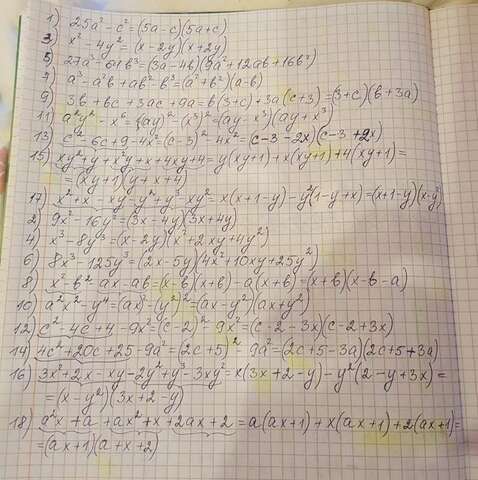 1) 25a² - c² = (5a - c)(5a + c)
3) x² - 4y² = (x - 2y)(x + 2y)
5) 27a³ - 64b³ = (3a - 4b)(9a² + 12ab + 16b²)
7) a³ - a²b + ab² - b³ = (a² + b²)(a - b)
9) 3b + bc + 3ac + 9a = b(3 + c) + 3a(c + 3) = (3 + c)(b + 3a)
11) a²y² - x⁶ = (ay)² - (x³)² = (ay - x³)(ay + x³)
13) c² - 6c + 9 - 4x² = (c - 3)² - 4x² = (c - 3 - 2x)(c - 3 + 2x)
15) xy² + y + x²y + x + 4xy + 4 = y(xy + 1) + x(xy + 1) + 4(xy + 1) =
= (xy + 1)(y + x + 4)
17) x² + x - xy - y² + y³ - xy² = x(x + 1 - y) - y²(1 - y + x) = (x + 1 - y)(x - y²)
2) 9x² - 16y² = (3x - 4y)(3x + 4y)
4) x³ - 8y³ = (x - 2y)(x² + 2xy + 4y²)
6) 8x³ - 125y³ = (2x - 5y)(4x² + 10xy + 25y²)
8) x² - b² ax - ab = (x - b)(x + b) - a(x + b) = (x + b)(x - b - a)
10) a²x² - y⁴ = (ax)² - (y²)² = (ax - y²)(ax + y²)
12) c² - 4c + 4 - 9x² = (c - 2)² - 9x² = (c - 2 - 3x)(c - 2 + 3x)
14) 4c² + 20c + 25 - 9a² = (2c + 5)² - 9a² = (2c + 5 - 3a)(2c + 5 + 3a)
16) 3x² + 2x - xy - 2y² + y³ - 3xy² = x(3x + 2 - y) - y²(2 - y + 3x) =
= (x - y²)(3x + 2 - y)
18) a²x + a + ax² + x + 2ax + 2 = a(ax + 1) + x(ax + 1) + 2(ax + 1) =
= (ax + 1)(a + x + 2)